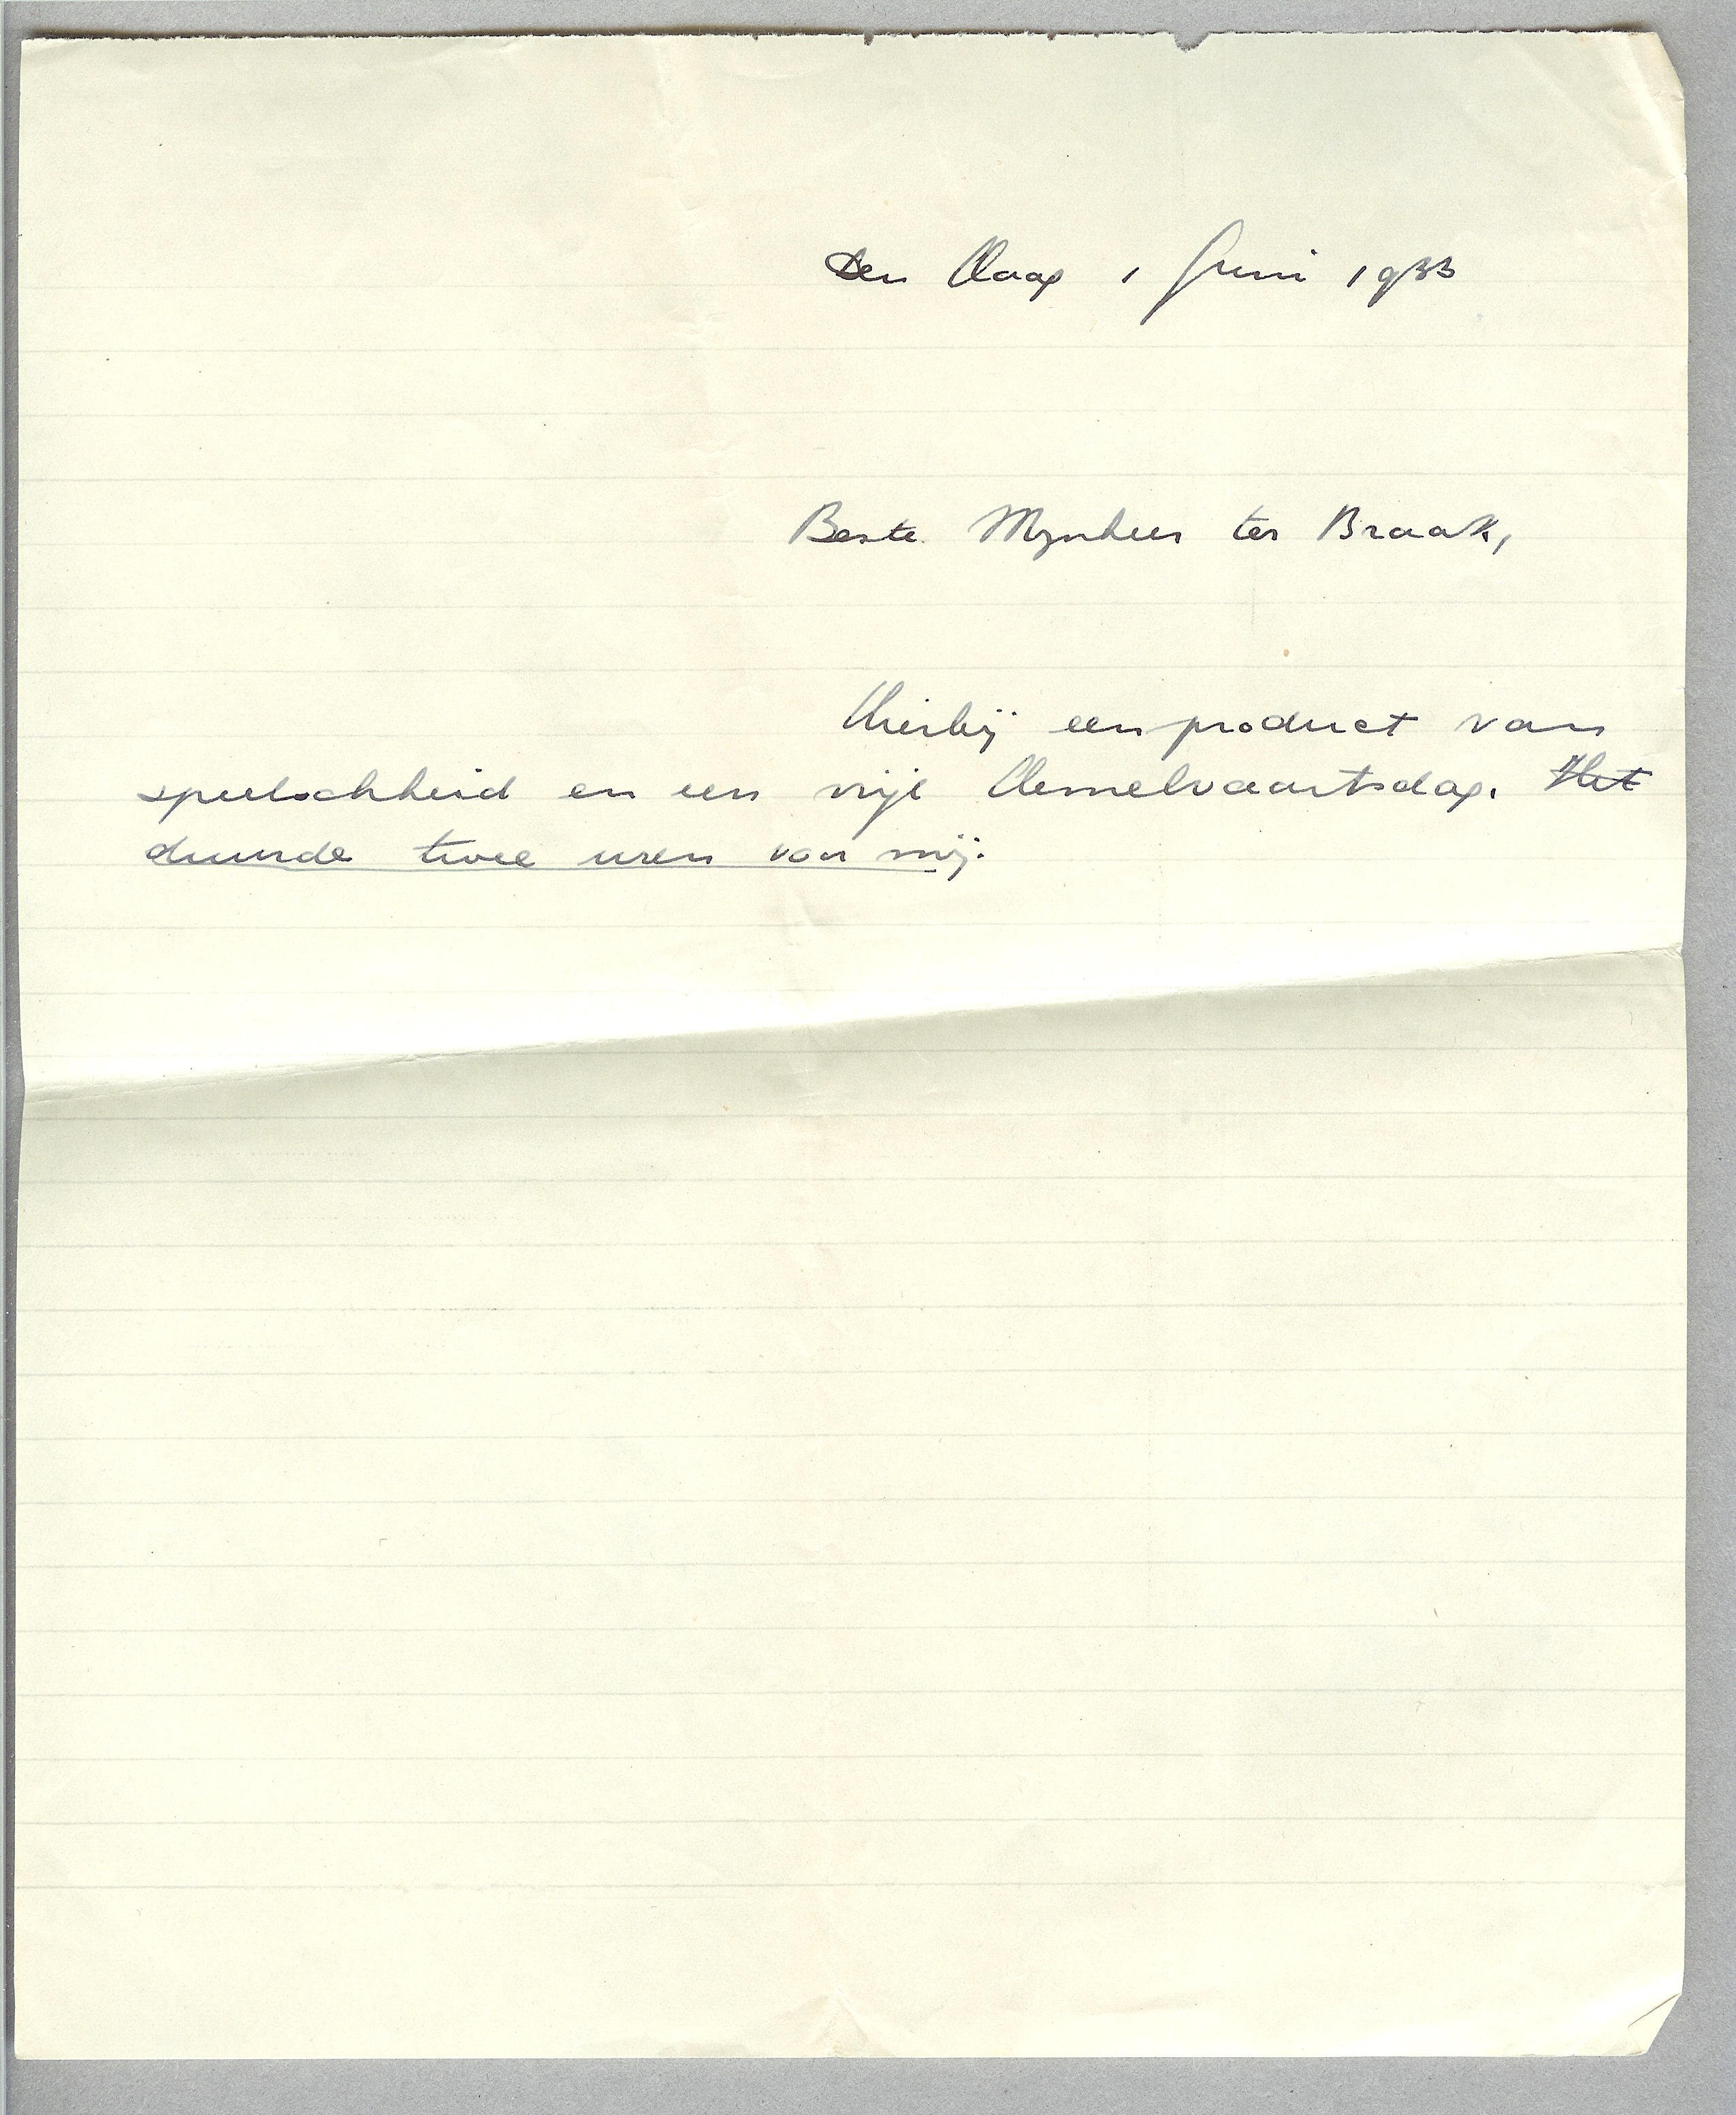 Den Haag 1 Juni 1933
Beste Mynheer ter Braak,
Hierbij een product van
speelschheid en een vrije Hemelvaartsdag. Het
duurde twee uren van mij.